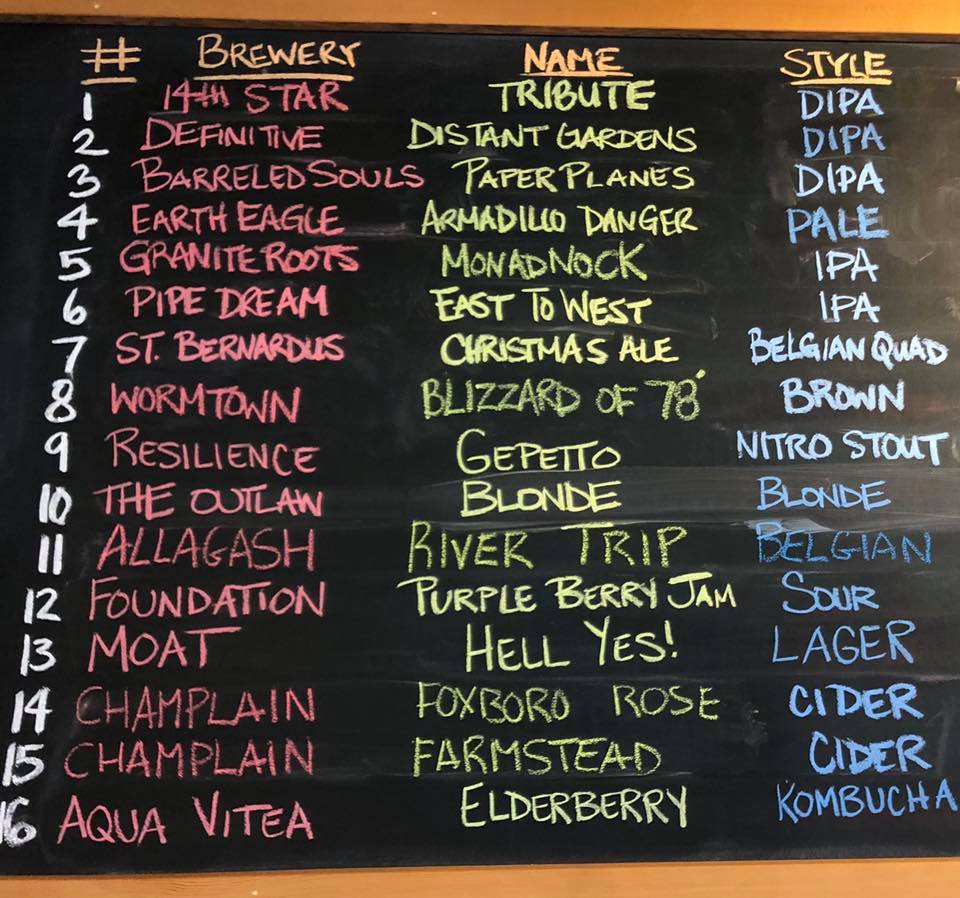 # BREWERY NAME STYLE
1 14TH STAR TRIBUTE DIPA
2 DEFINITIVE DISTANT GARDENS DIPA
3 BARRELED SOULS PAPER PLANES DIPA
4 EARTH EAGLE ARMADILLO DANGER PALE
5 GRANITE ROOTS MONADNOCK IPA
6 PIPE DREAM EAST TO WEST IPA
7 ST. BERNARDUS CHRISTMAS ALE BELGIAN QUAD
8 WORMTOWN BLIZZARD OF 78' BROWN
9 RESILIENCE GEPETTO NITRO STOUT
10 THE OUTLAW BLONDE BLONDE
11 ALLAGASH RIVER TRIP BELGIAN
12 FOUNDATION PURPLE BERRY JAM SOUR
13 MOAT HELL YES! LAGER
14 CHAMPLAIN FOXBORO ROSE CIDER
15 CHAMPLAIN FARMSTEAD CIDER
16 AQUA VITEA ELDERBERRY KOMBUCHA